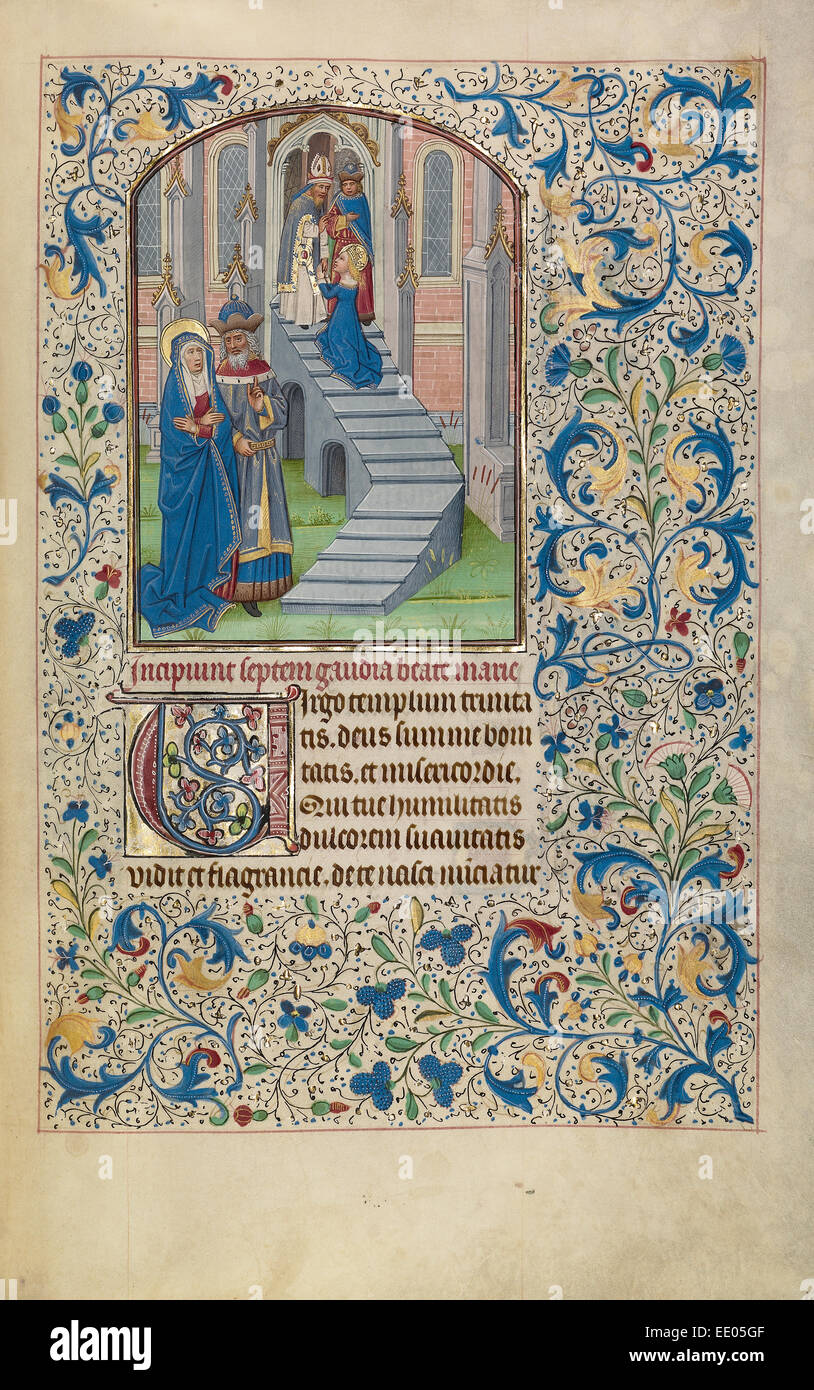 Incipiunt septem gaudia beate marie
Virgo templum trinita
tis. deus summe boni
tatis. et misericordie.
Qui tue humilitatis
dulcorem suavitatis
vidit et flagrancie. de te nasci nunciatur
alamy stock photo
EE05GF
www.alamy.com